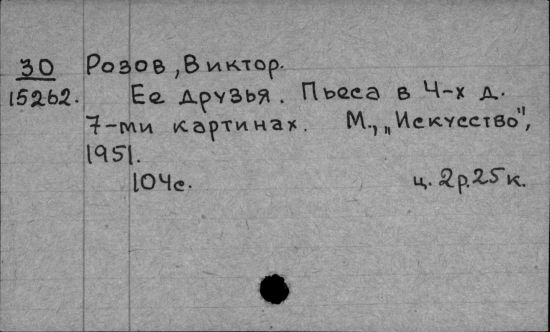 30 Розов, Виктор.
15262. Ее друзья. Пьеса в 4-х д.
7-ми картинах. М., „Искусство",
1951.
104с. ц. 2р.25к.